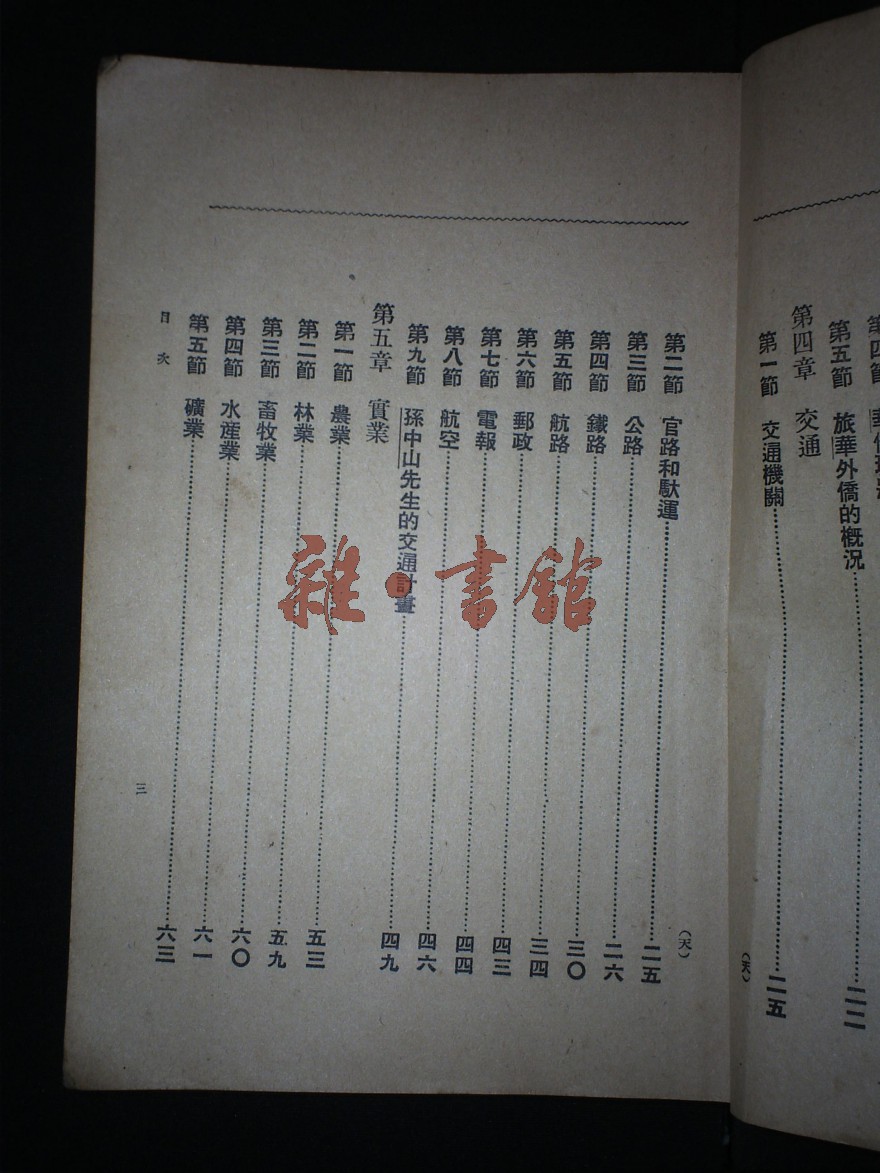 第四節
第五節 旅華外僑的概況……二二
第四章 交通
第一節 交通機關……二五
(天)
(天)
第二節 官路和馱運……二五
第三節 公路……二六
第四節 鐵路……三〇
第五節 航路……三四
第六節 郵政……四三
第七節 電報……四四
第八節 航空……四六
第九節 孫中山先生的交通計畫……四九
第五章 實業
第一節 農業……五三
第二節 林業……五九
第三節 畜牧業……六〇
第四節 水產業……六一
第五節 礦業……六三
目次 三
雜·書館